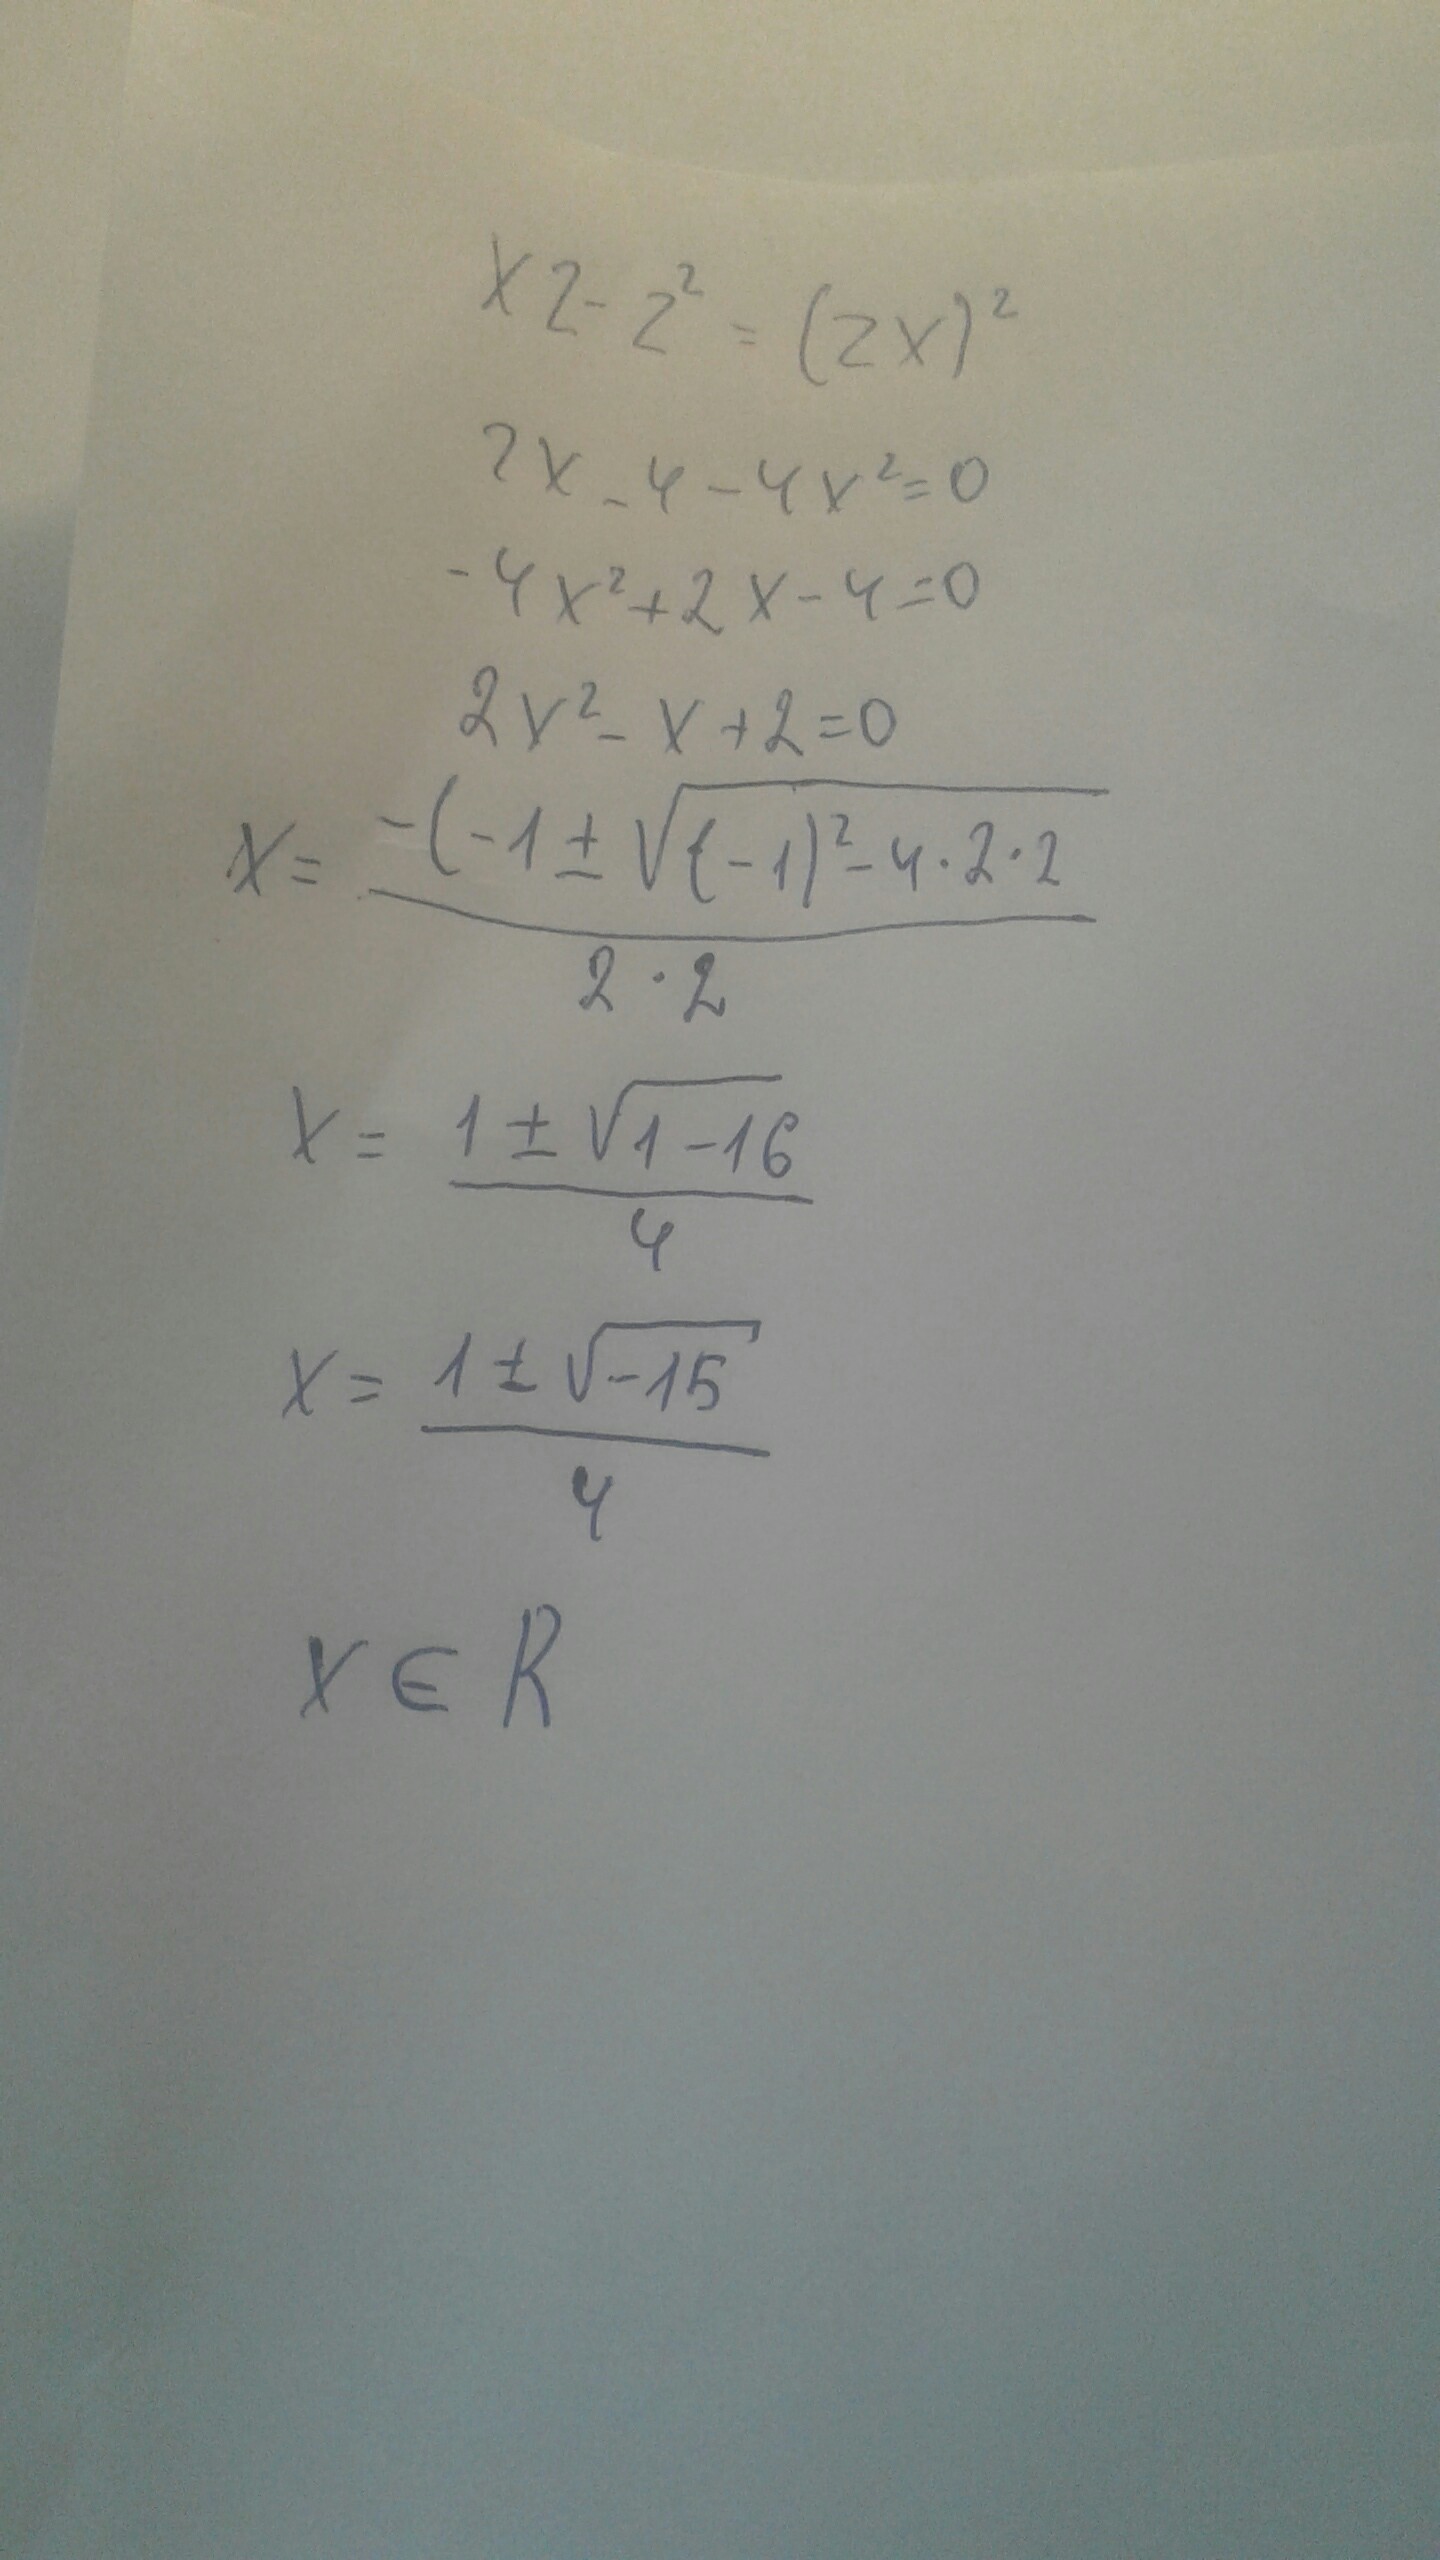 x2-2² = (2x)²
2x-4-4x²=0
-4x²+2x-4=0
2x²-x+2=0
x= -(-1±√(-1)²-4·2·2
2·2
x= 1±√1-16
4
x= 1±√-15
4
x∈R